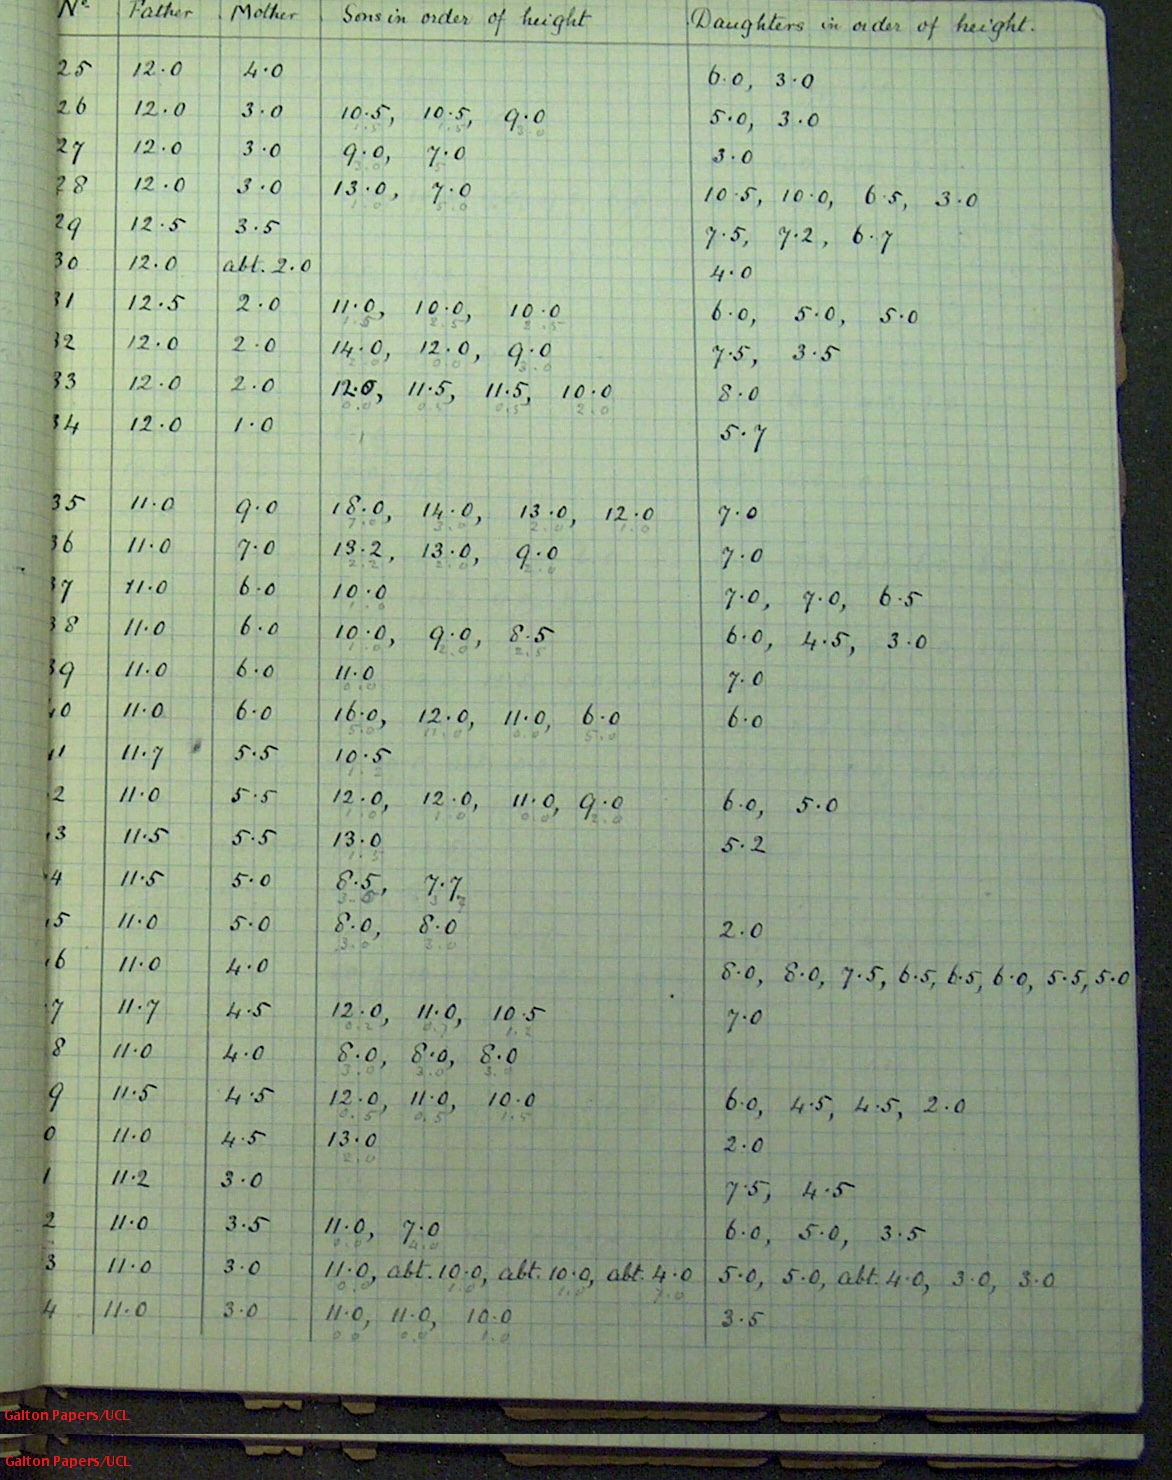 Nº Father Mother Sons in order of height Daughters in order of height.
25 12.0 4.0 6.0, 3.0
26 12.0 3.0 10.5, 10.5, 9.0 5.0, 3.0
27 12.0 3.0 9.0, 7.0 3.0
28 12.0 3.0 13.0, 7.0 10.5, 10.0, 6.5, 3.0
29 12.5 3.5 7.5, 7.2, 6.7
30 12.0 abt. 2.0 4.0
31 12.5 2.0 11.0, 10.0, 10.0 6.0, 5.0, 5.0
32 12.0 2.0 14.0, 12.0, 9.0 7.5, 3.5
33 12.0 2.0 12.0, 11.5, 11.5, 10.0 8.0
34 12.0 1.0 5.7
35 11.0 9.0 18.0, 14.0, 13.0, 12.0 7.0
36 11.0 7.0 13.2, 13.0, 9.0 7.0
37 11.0 6.0 10.0 7.0, 7.0, 6.5
38 11.0 6.0 10.0, 9.0, 8.5 6.0, 4.5, 3.0
39 11.0 6.0 11.0 7.0
40 11.0 6.0 16.0, 12.0, 11.0, 6.0 6.0
1 11.7 5.5 10.5
2 11.0 5.5 12.0, 12.0, 11.0, 9.0 6.0, 5.0
3 11.5 5.5 13.0 5.2
4 11.5 5.0 8.5, 7.7
5 11.0 5.0 8.0, 8.0 2.0
6 11.0 4.0 8.0, 8.0, 7.5, 6.5, 6.5, 6.0, 5.5, 5.0
7 11.7 4.5 12.0, 11.0, 10.5 7.0
8 11.0 4.0 8.0, 8.0, 8.0
9 11.5 4.5 12.0, 11.0, 10.0 6.0, 4.5, 4.5, 2.0
0 11.0 4.5 13.0 2.0
1 11.2 3.0 7.5, 4.5
2 11.0 3.5 11.0, 7.0 6.0, 5.0, 3.5
3 11.0 3.0 11.0, abt. 10.0, abt. 10.0, abt. 4.0 5.0, 5.0, abt. 4.0, 3.0, 3.0
4 11.0 3.0 11.0, 11.0, 10.0 3.5
Galton Papers/UCL
Galton Papers/UCL